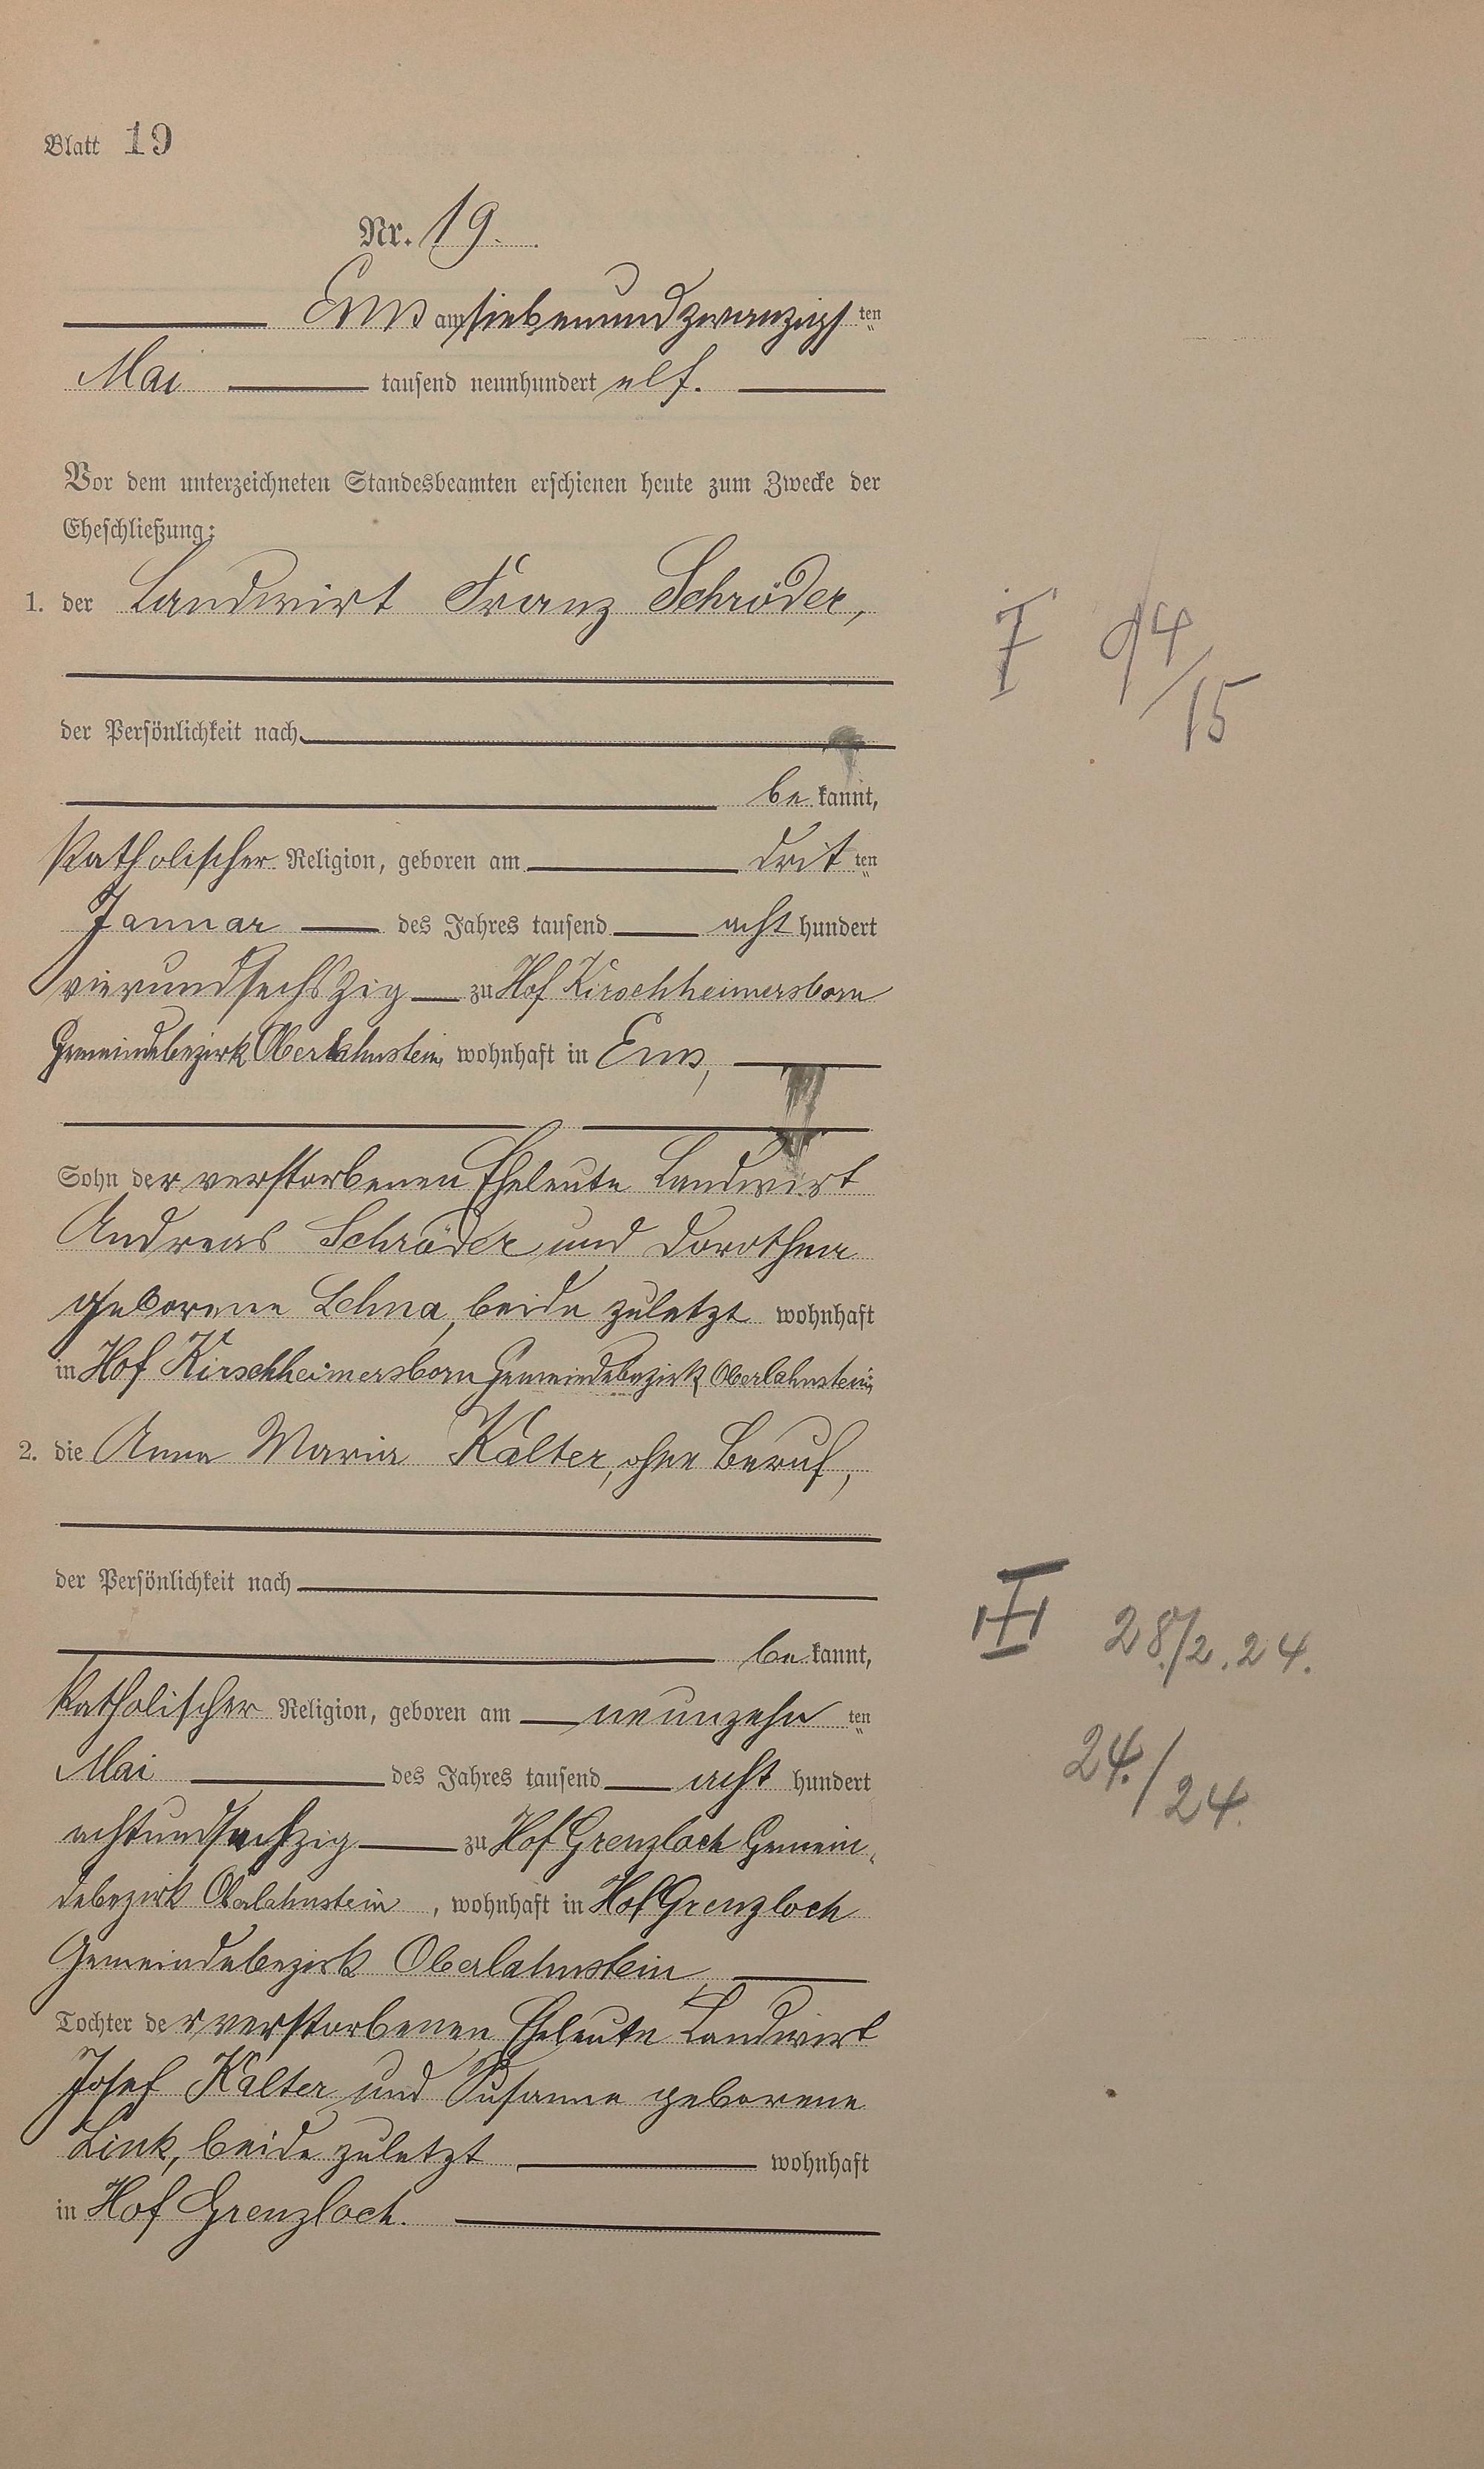 Blatt 19
Nr. 19.
Ems am siebenundzwanzigsten
Mai tausend neunhundert elf.
Vor dem unterzeichneten Standesbeamten erschienen heute zum Zwecke der
Eheschließung:
1. der Landwirt Franz Schröder,
der Persönlichkeit nach
bekannt,
katholischer Religion, geboren am dritten
Januar des Jahres tausend acht hundert
vierundsechszig zu Hof Kirschheimersborn
Gemeindebezirk Oberlahnstein, wohnhaft in Ems,
Sohn der verstorbenen Eheleute Landwirt
Andreas Schröder und Dorothea
geborene Lehna, beide zuletzt wohnhaft
in Hof Kirschheimersborn Gemeindebezirk Oberlahnstein,
2. die Anna Maria Kalter, ohne Beruf,
der Persönlichkeit nach
bekannt,
katholischer Religion, geboren am neunzehnten
Mai des Jahres tausend acht hundert
achtundsechzig zu Hof Grenzloch Gemein-
debezirk Oberlahnstein, wohnhaft in Hof Grenzloch
Gemeindebezirk Oberlahnstein,
Tochter der verstorbenen Eheleute Landwirt
Josef Kalter und Susanna geborene
Link, beide zuletzt wohnhaft
in Hof Grenzloch.
/15
28./2. 24.
24./24.